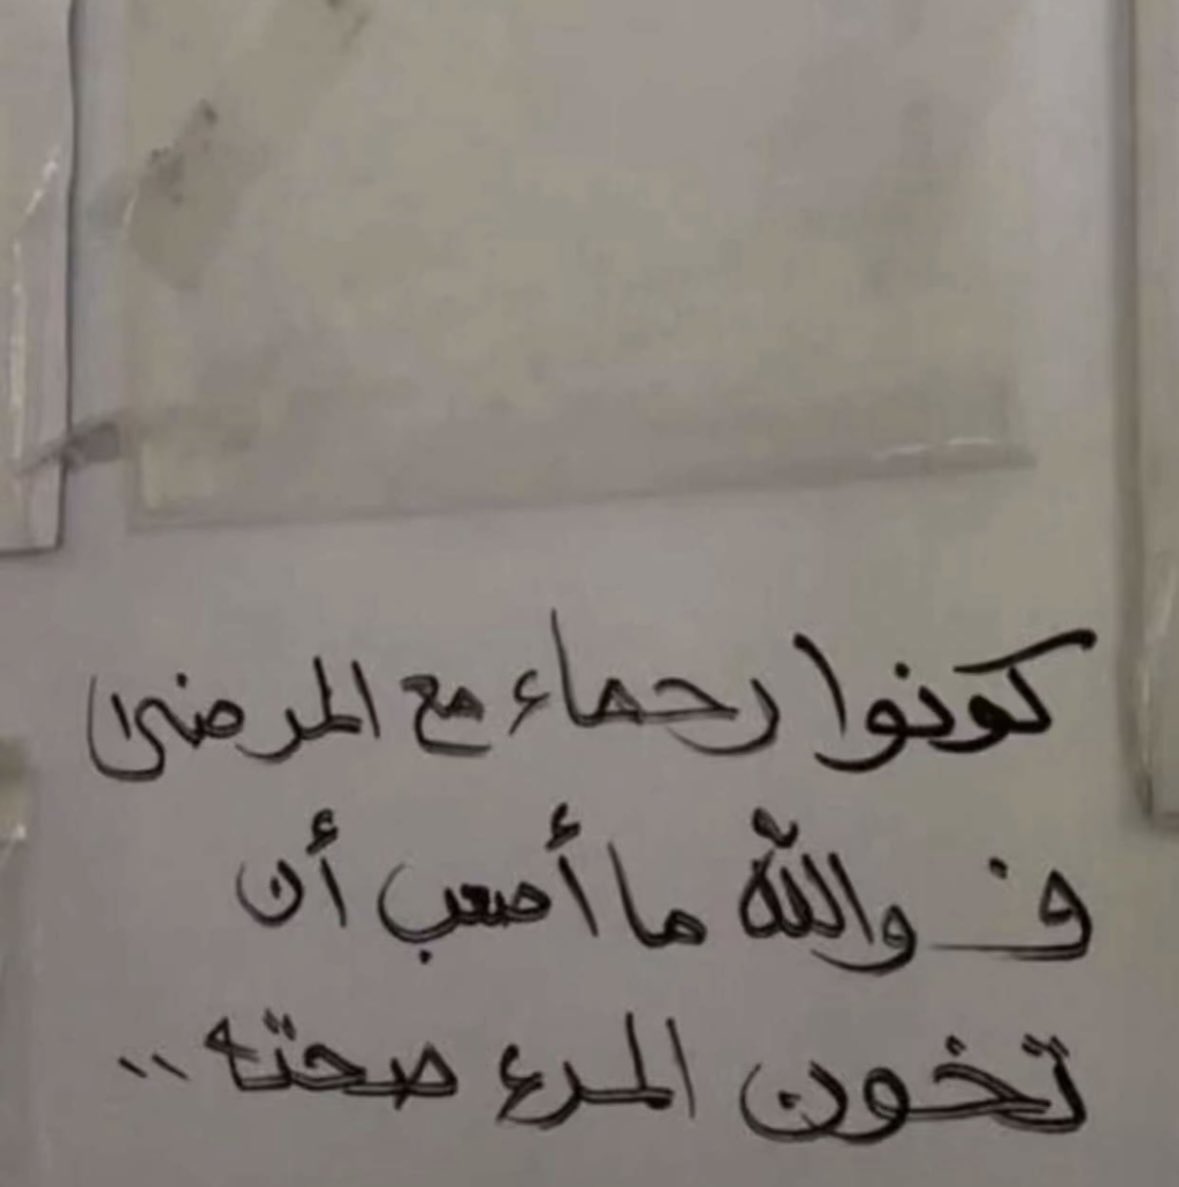 كونوا رحماء مع المرضى
فـ والله ما أصعب أن
تخون المرء صحته ..